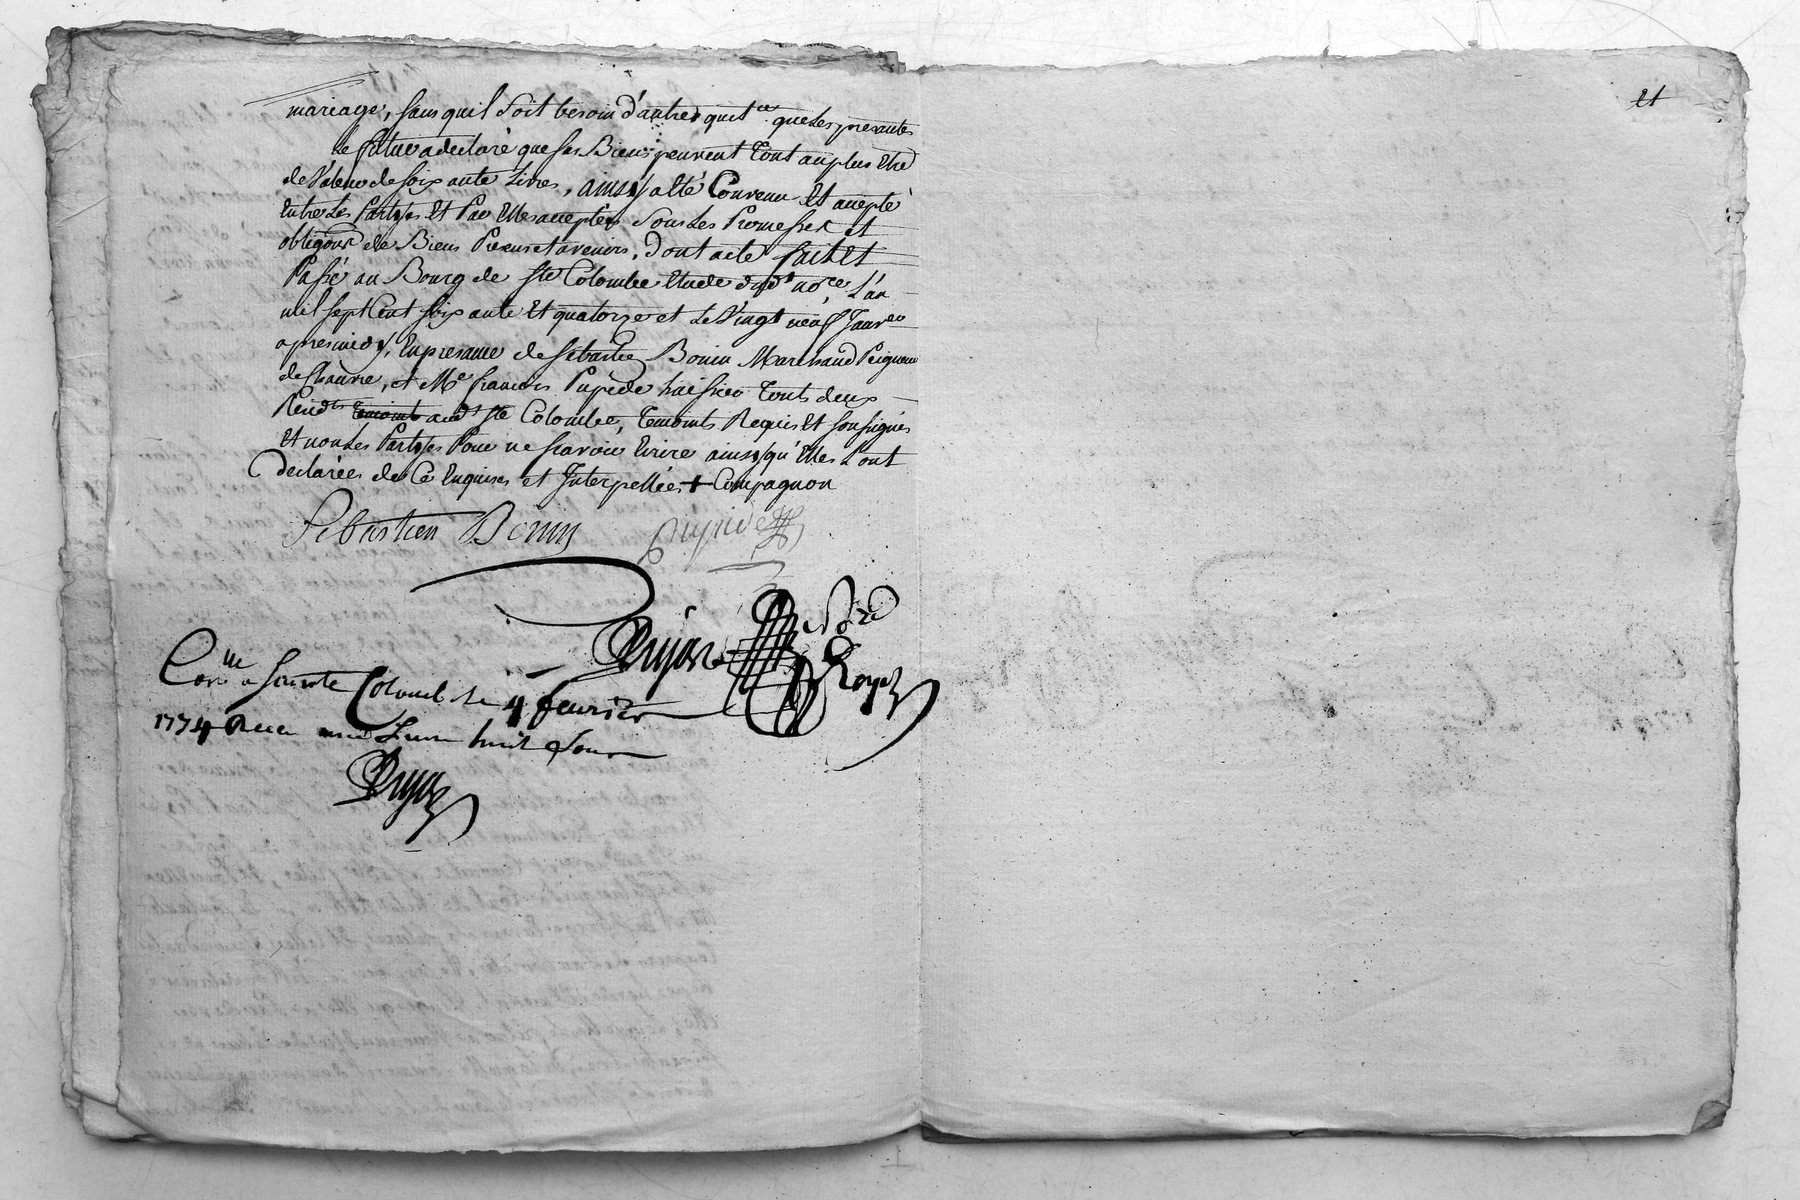 mariage, sans quil soit besoin d'autres quit.ce que les presentes
le futur a declaré que ses Biens peuvent tout au plus être
de valeur de soixante Livres, ainsy a été Convenu Et accepté
Entre Les Partyes Et Par Elles acceptées sous Les Promesses et
obligons de Biens Presens et avenirs, Dont acte fait Et
Passé au Bourg de Ste Colombe Etude dudt nore, L'an
mil sept Cent soixante Et quatorze et Le Vingt neuf Janver
apresmidy, En presance de Sébastien Bonin Marchand Peigneur
de Chanvre, et Me francois Pupide huissier Touts deux
Reidts temoints audt Ste Colombe, Temoints Requis Et soussignés
Et non Les Partyes Pour ne scavoir Ecrire ainsy qu'Elles L'ont
declarées de Ce Enquises et Interpellées + Compagnon
Sebastien Bonin
Pupide
Dujast
Nore
Royal
Conlle a Sainte Colombe le 4 fevrier
1774 Recu une Livre huit sous
Dujast
21